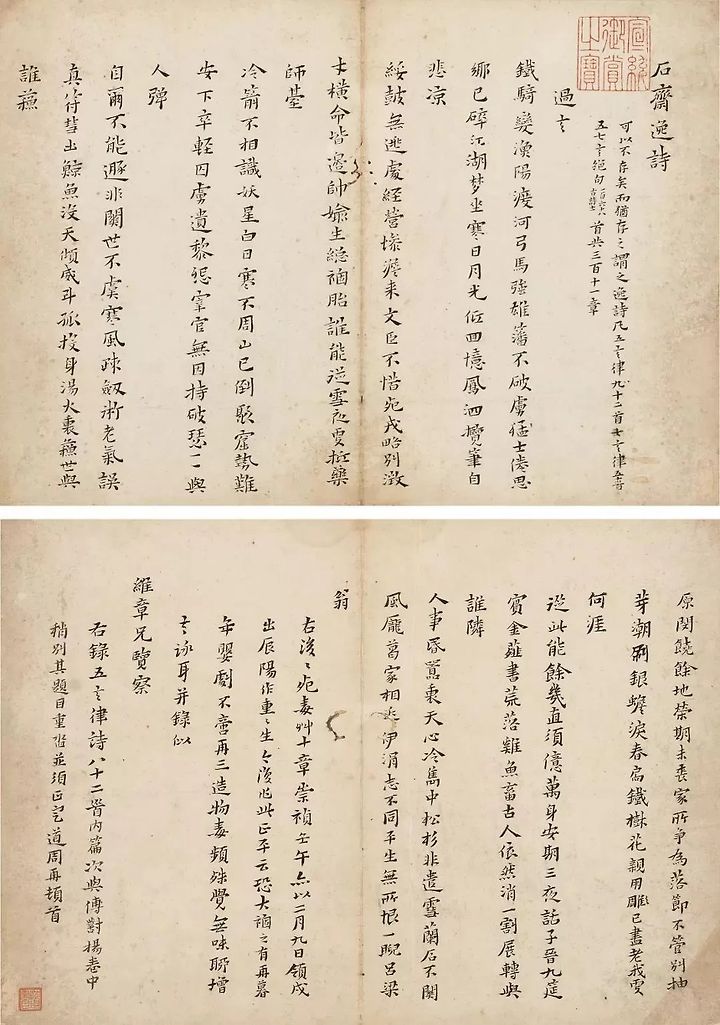 石齋逸詩
可以不存矣而猶存之謂之逸詩凡五言律九十二首七言律五首
五七言絕句二百六十八古詩七首共三百十一章
過言
鐵騎變漁陽瘦河弓馬強雄藩不破虜猛士浪思
鄉已碎江湖夢坐寒日月光低回憶鳳泗攬筆自
悲涼
綏鼓無逃處經營悔從來文臣不惜死戎略別徵
才橫命皆邊帥媮生總禍胎誰能逆雪夜更
師臺
冷箭不相識妖星白日寒不周山已倒聚窟勢難
安下卒輕囚虜遺黎怨宰官無因持破瑟一一與
人彈
自爾不能遯非關世不虞寒風疎劔術老氣誤
真符彗出鯨魚沒天傾威斗孤投身湯火裏蘓世與
誰蘓
原閒饒餘地榮期未喪家所爭為落節不管別抽
芽潮
銀蟾淚春高鐵樹花親用雕已盡老我更
何涯
從此能餘幾直須億萬身安期三夜話子晉九筵
賓金薤書荒落雞魚畜古人依然消一割展轉與
誰隣
人事昏蒿裏天心冷雋中松杉非遣雪蘭石不關
風龐葛家相近伊涓志不同平生無所恨一睨呂梁
翁
右後後死毒艸十章崇禎壬午亦以二月九日領戍
出辰陽作重重生今後作此正平云恐大禍之有再暮
年嬰劇不啻再三造物毒頻殊覺無味聊增
言詠耳并錄似
維章兄覽察
右錄五言律詩八十二首內篇次與傳對揚卷中
稍別其題目重沓並須正定道周再頓首
宣統御賞之寶